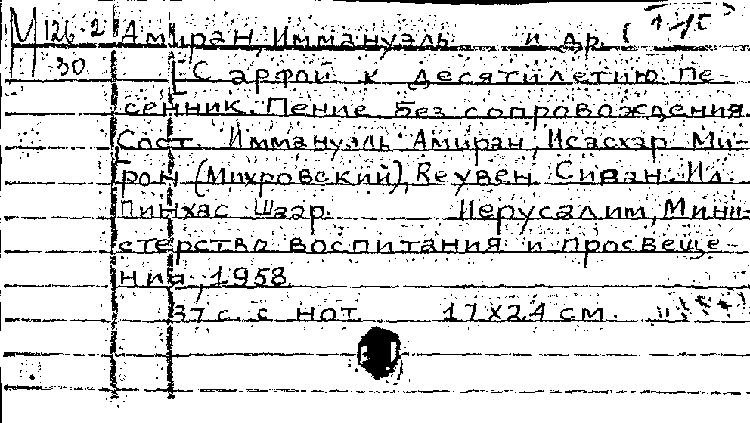 М 126-2 Амиран, Иммануэль и др.
30 [С арфой к десятилетию. Пе-
сенник. Пение без сопровождения.
Сост. Иммануэль Амиран, Исасхар Ми-
рон (Михровский), Реувен Сиван. Ил.
Пинхас Шаар. Иерусалим, Мини-
стерство воспитания и просвеще-
ния, 1958.
37 с. с нот. 17х24 см.